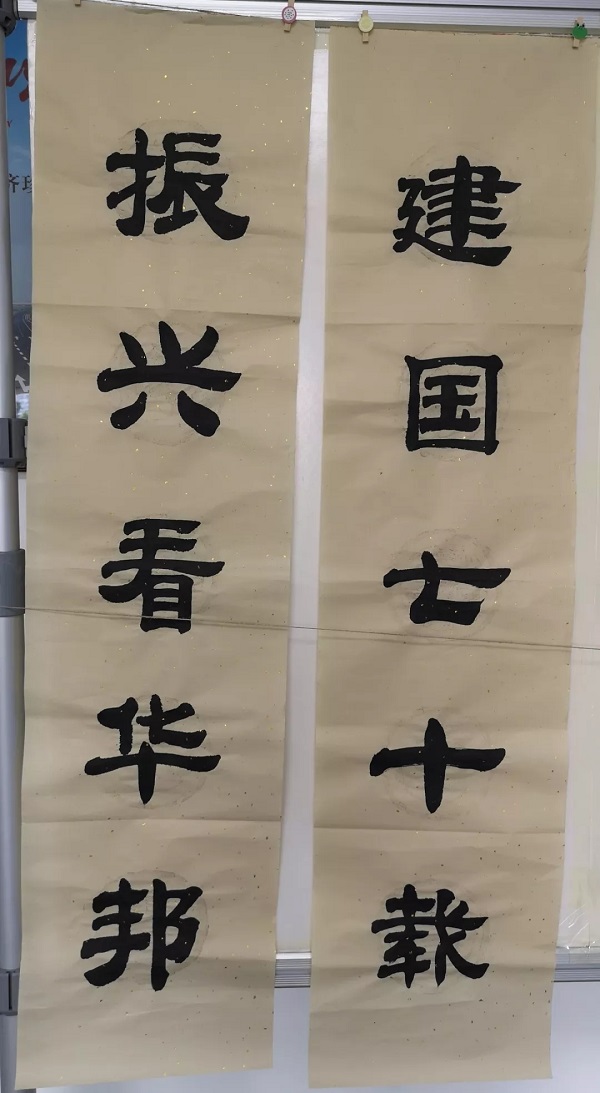 建国七十载
振兴看华邦